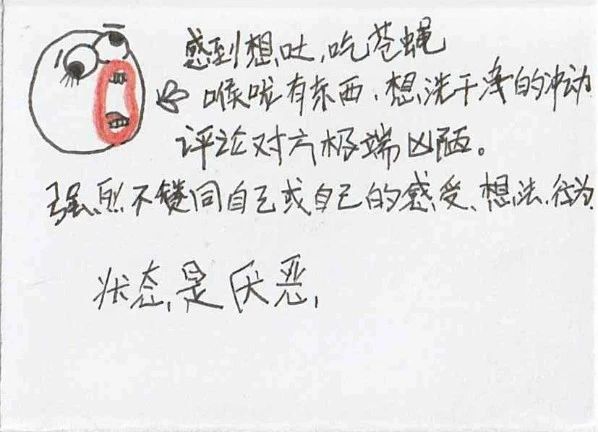 感到想吐,吃苍蝇
喉咙有东西,想洗干净的冲动
评论对方极端凶陋。
强烈不赞同自己或自己的感受、想法、行为
状态,是厌恶,